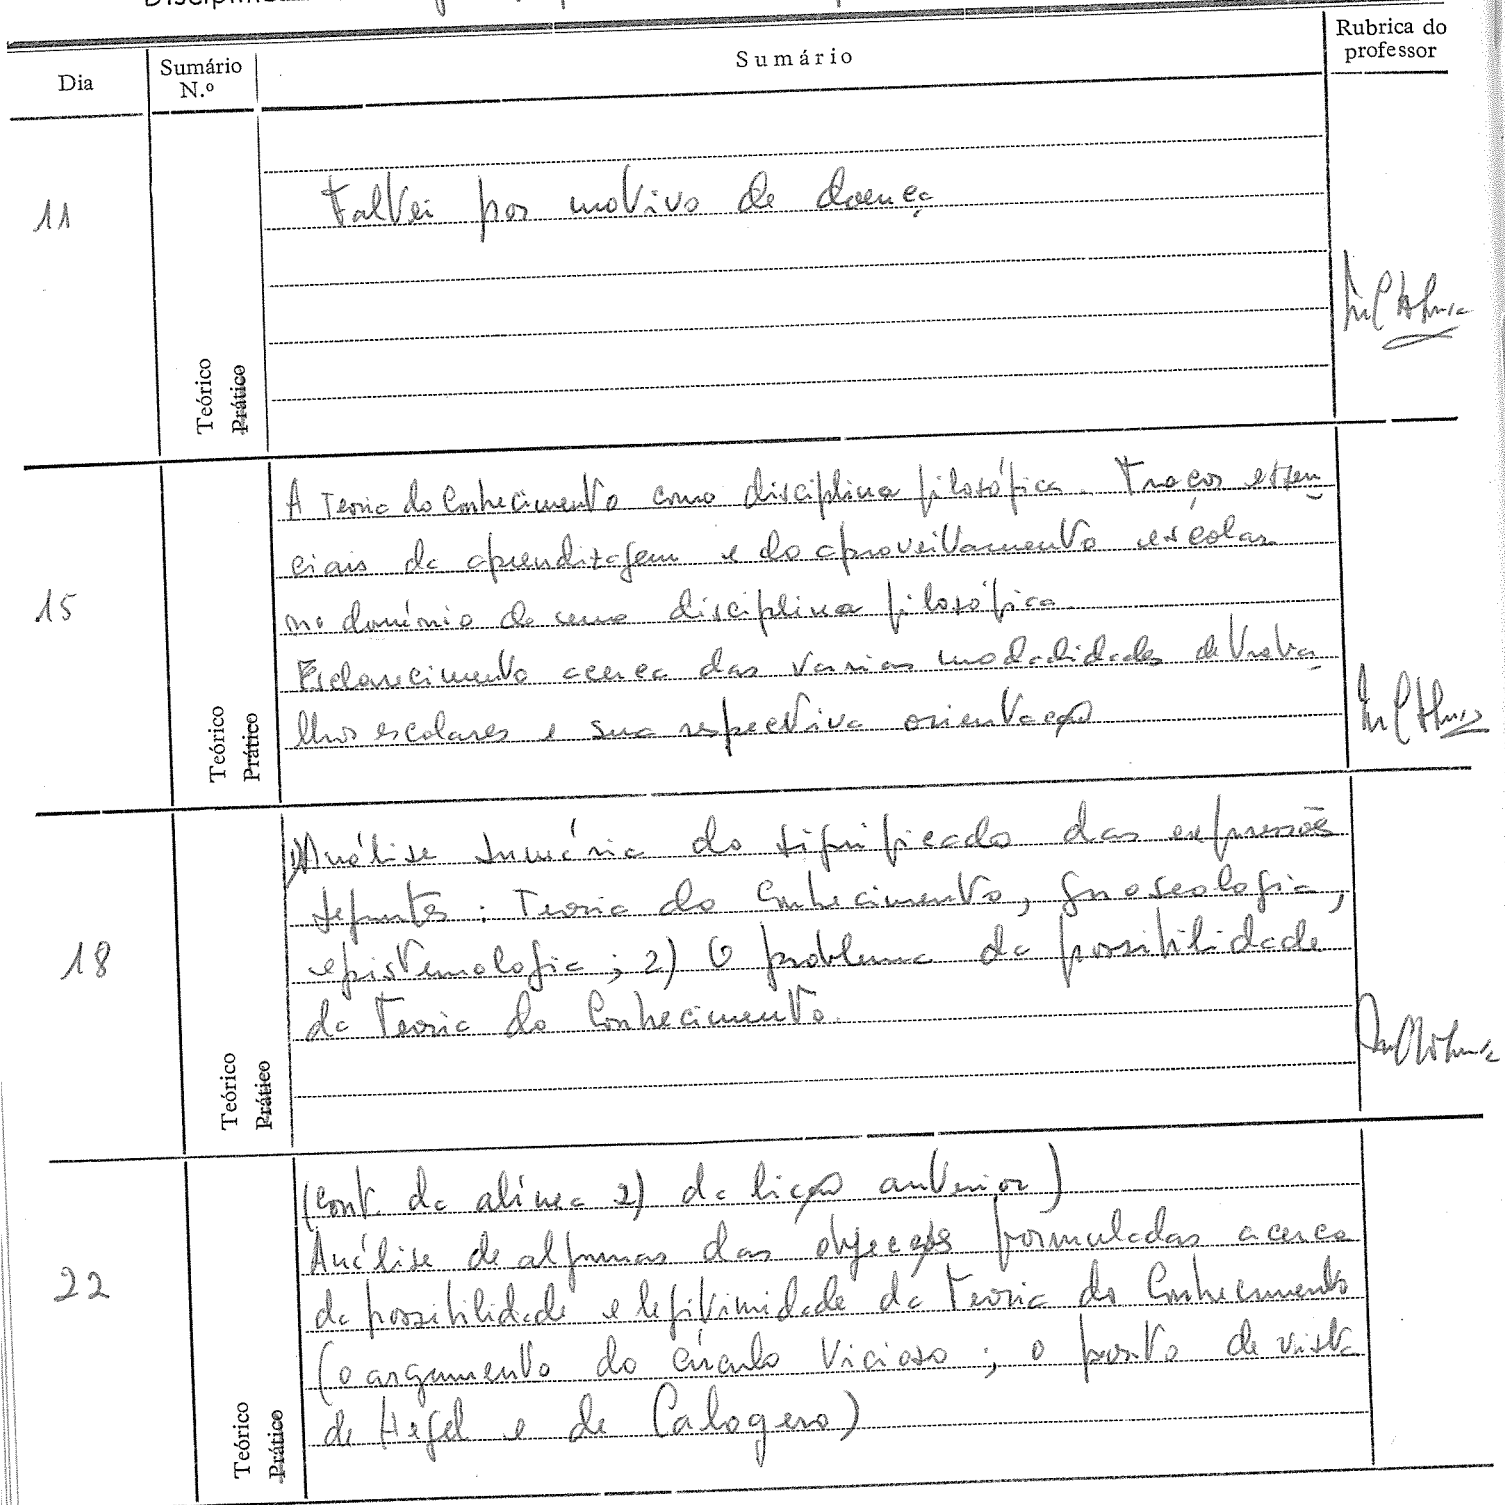 Dia
Sumário
N.º
Sumário
Rubrica do
professor
11
Teórico
Prático
Faltei por motivo de doença
15
Teórico
Prático
A Teoria do Conhecimento como disciplina filosófica. Traços essen
ciais da aprendizagem e do aproveitamento escolar
no domínio de uma disciplina filosófica.
Esclarecimento acerca das varias modalidades de traba
lhos escolares e sua respectiva orientação
18
Teórico
Prático
1) Análise sumária do significado das expressões
seguintes: Teoria do Conhecimento, gnoseologia,
epistemologia; 2) O problema da possibilidade
da Teoria do Conhecimento.
22
Teórico
Prático
(Cont. da alínea 2) da lição anterior)
Análise de algumas das objecções formuladas acerca
da possibilidade e legitimidade da Teoria do Conhecimento
(o argumento do círculo vicioso; o ponto de vista
de Hegel e de Calogero)